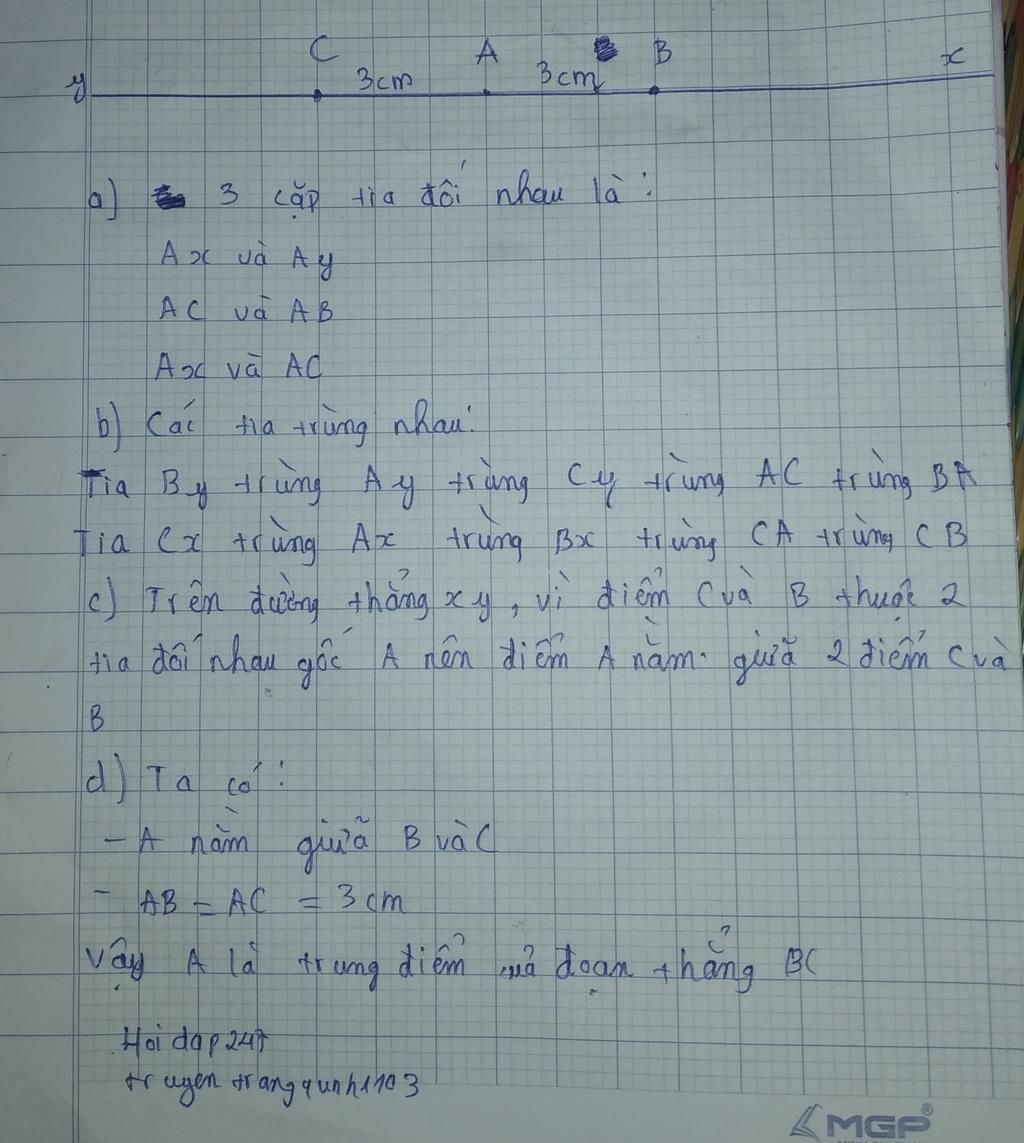 C A B x
y 3cm 3cm
a) 3 cặp tia đối nhau là:
Ax và Ay
AC và AB
Ax và AC
b) Các tia trùng nhau:
Tia By trùng Ay trùng Cy trùng AC trùng BA
Tia Cx trùng Ax trùng Bx trùng CA trùng CB
c) Trên đường thẳng xy, vì điểm C và B thuộc 2
tia đối nhau gốc A nên điểm A nằm giữa 2 điểm C và
B
d) Ta có:
- A nằm giữa B và C
- AB = AC = 3cm
Vậy A là trung điểm của đoạn thẳng BC
Hoi dap 247
truyen trangquynh1103
MGP®